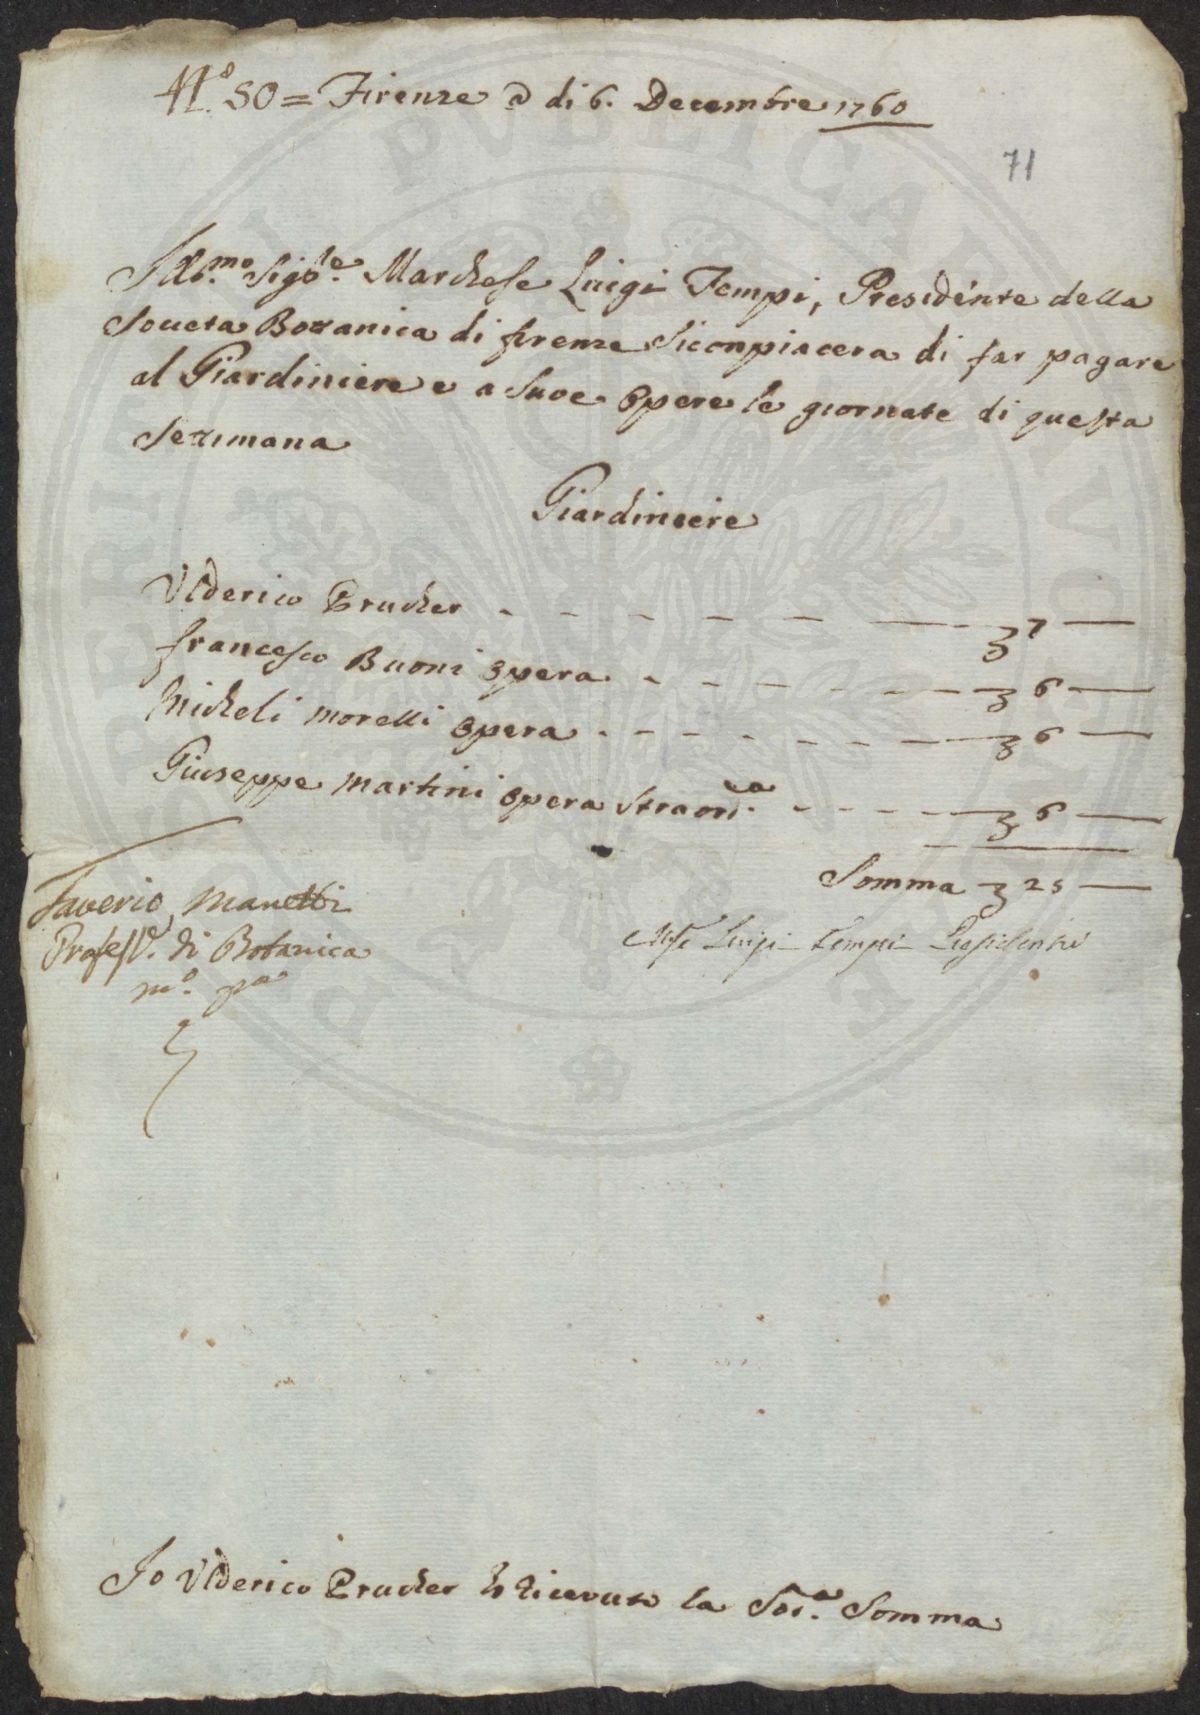 N.o 50 = Firenze a di 6. Decembre 1760
71
Ill.mo Sig.re Marchese Luigi Tempi, Presidente della
Societa Botanica di firenze Siconpiacera di far pagare
al Giardiniere e a Suoe Opere le giornate di questa
Setimana
Giardiniere
Vlderico Prucker - - - - - - 7 —
francesco Buoni opera - - - - - 6 —
Micheli Morelli opera - - - - - 6 —
Giuseppe Martini opera Straord.a - - - - 6 —
Somma 25 —
Saverio Manetti
Profess.e di Botanica
m.o pa
Mse Luigi Tempi Presidente
Io Vlderico Prucker ho ricevuto la Sod.a Somma